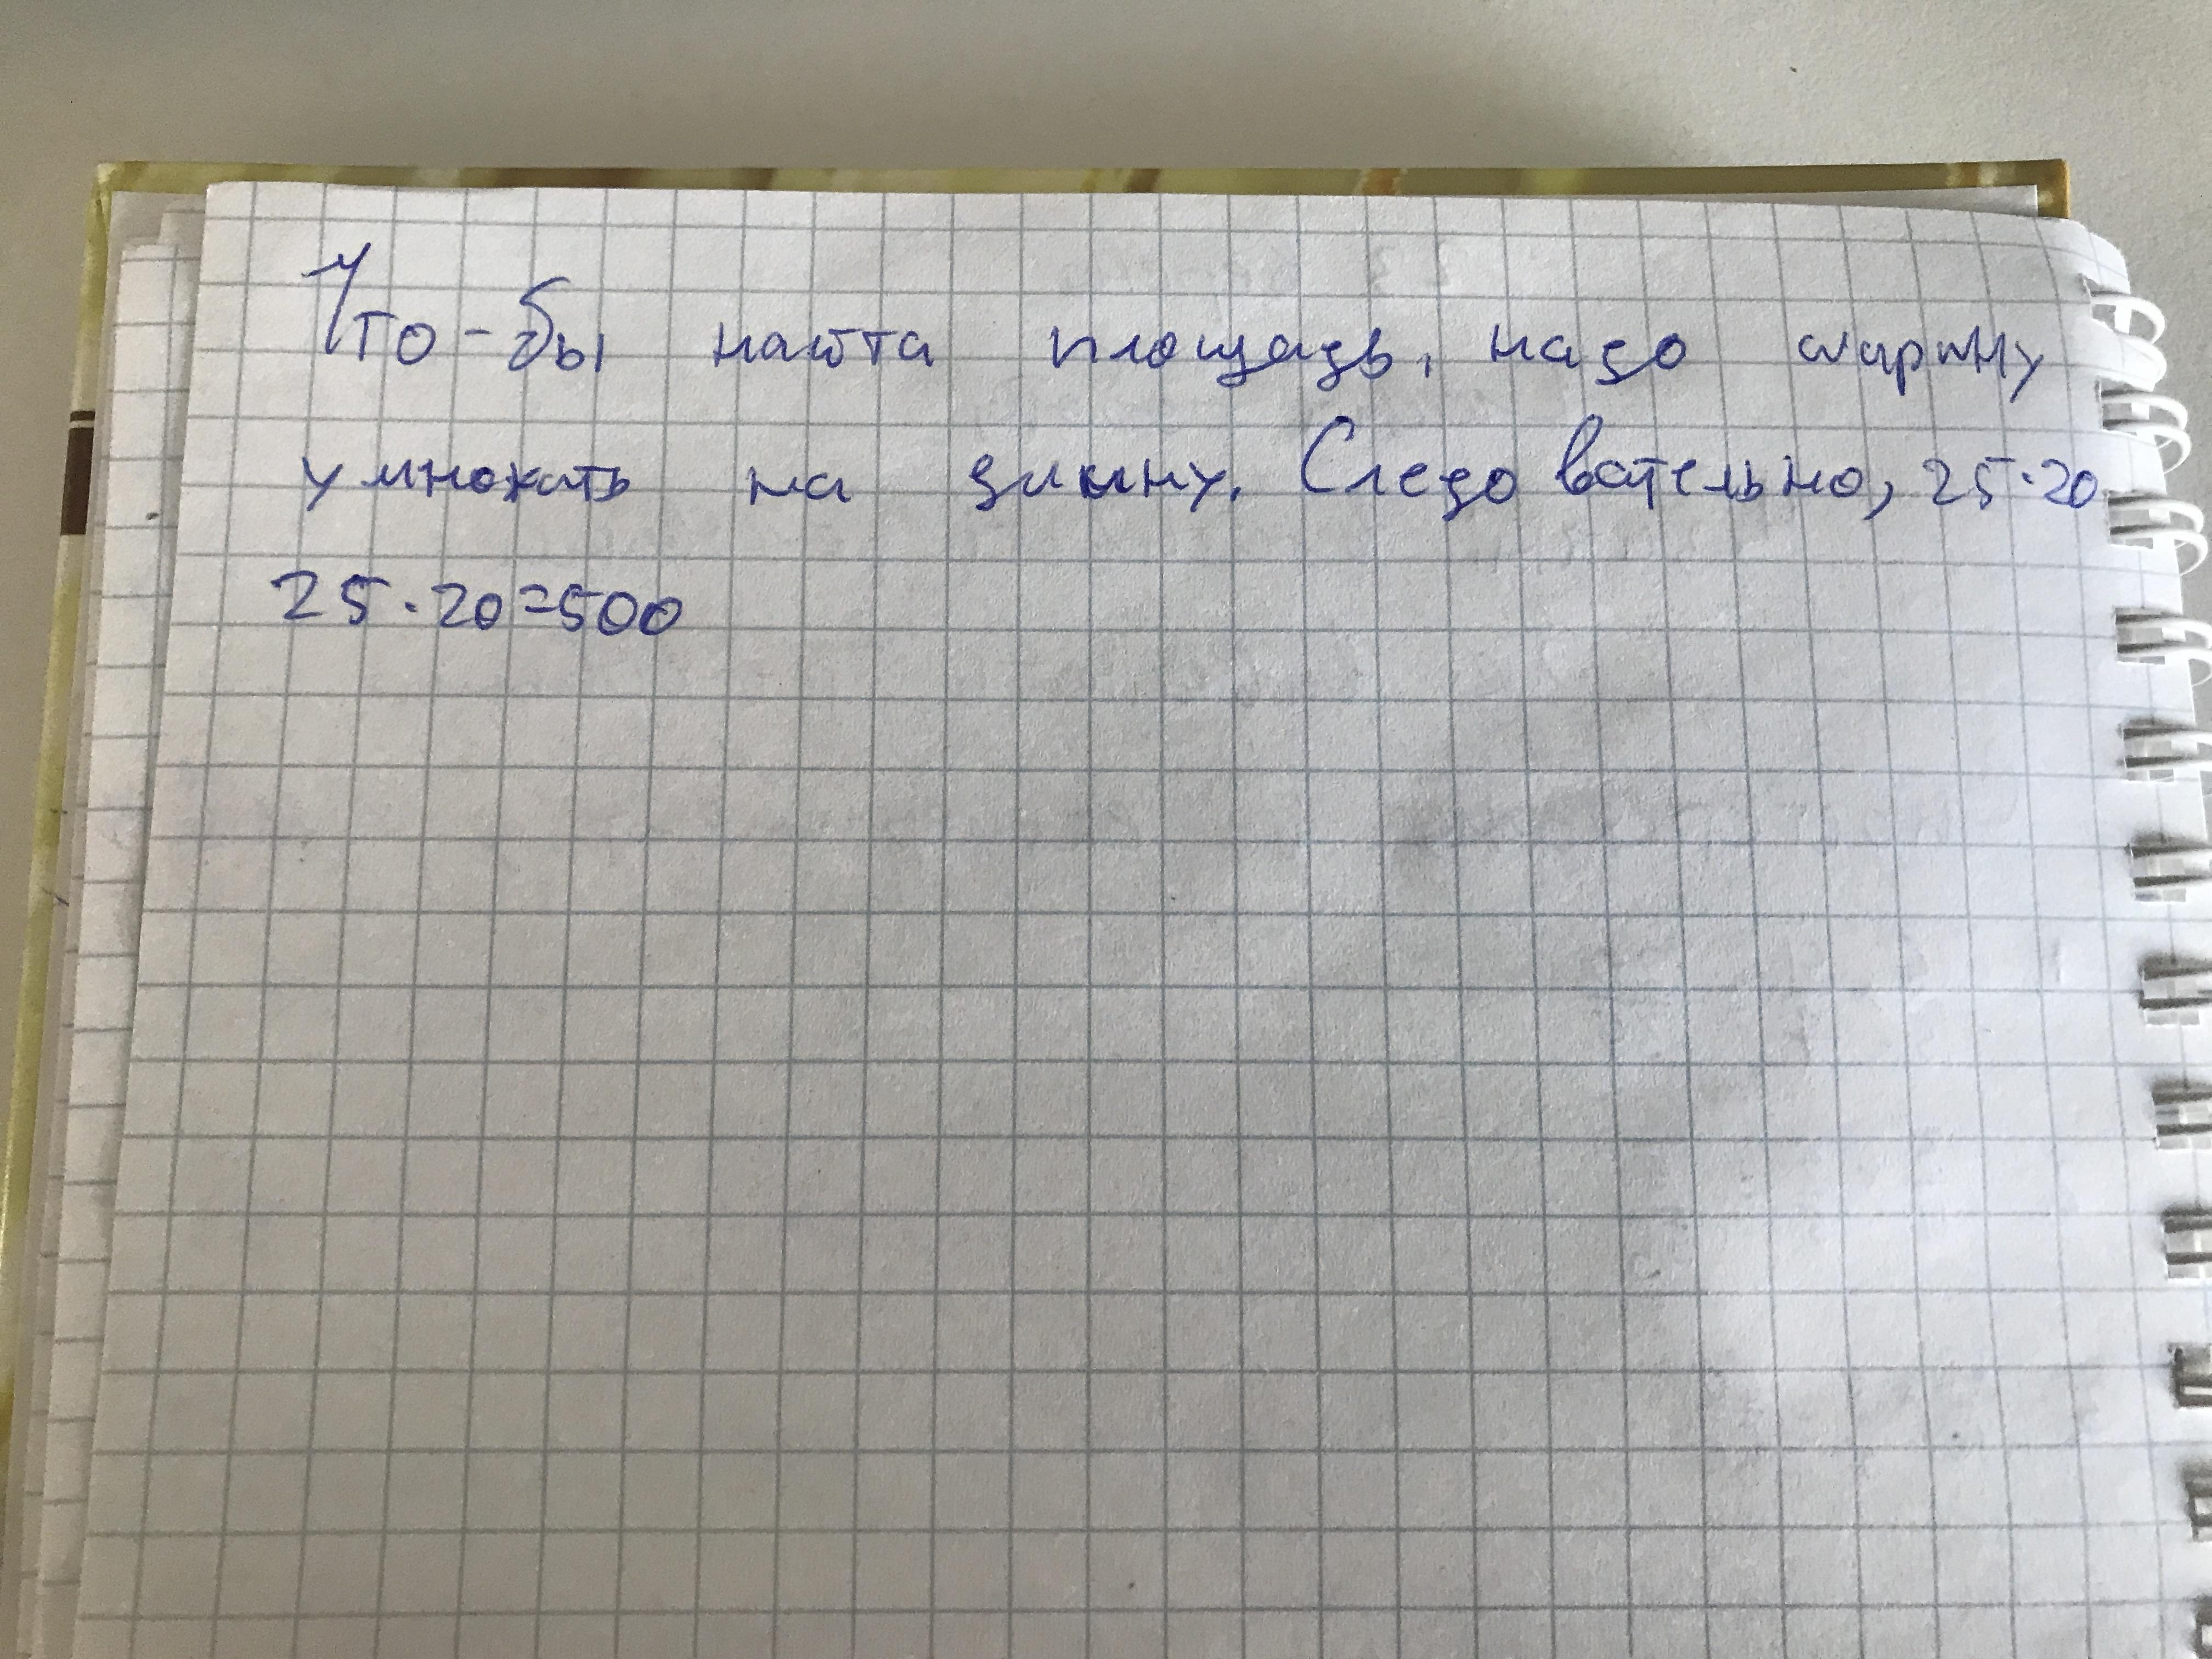 Что-бы найти площадь, надо ширину
умножать на длинну. Следовательно, 25·20
25·20=500